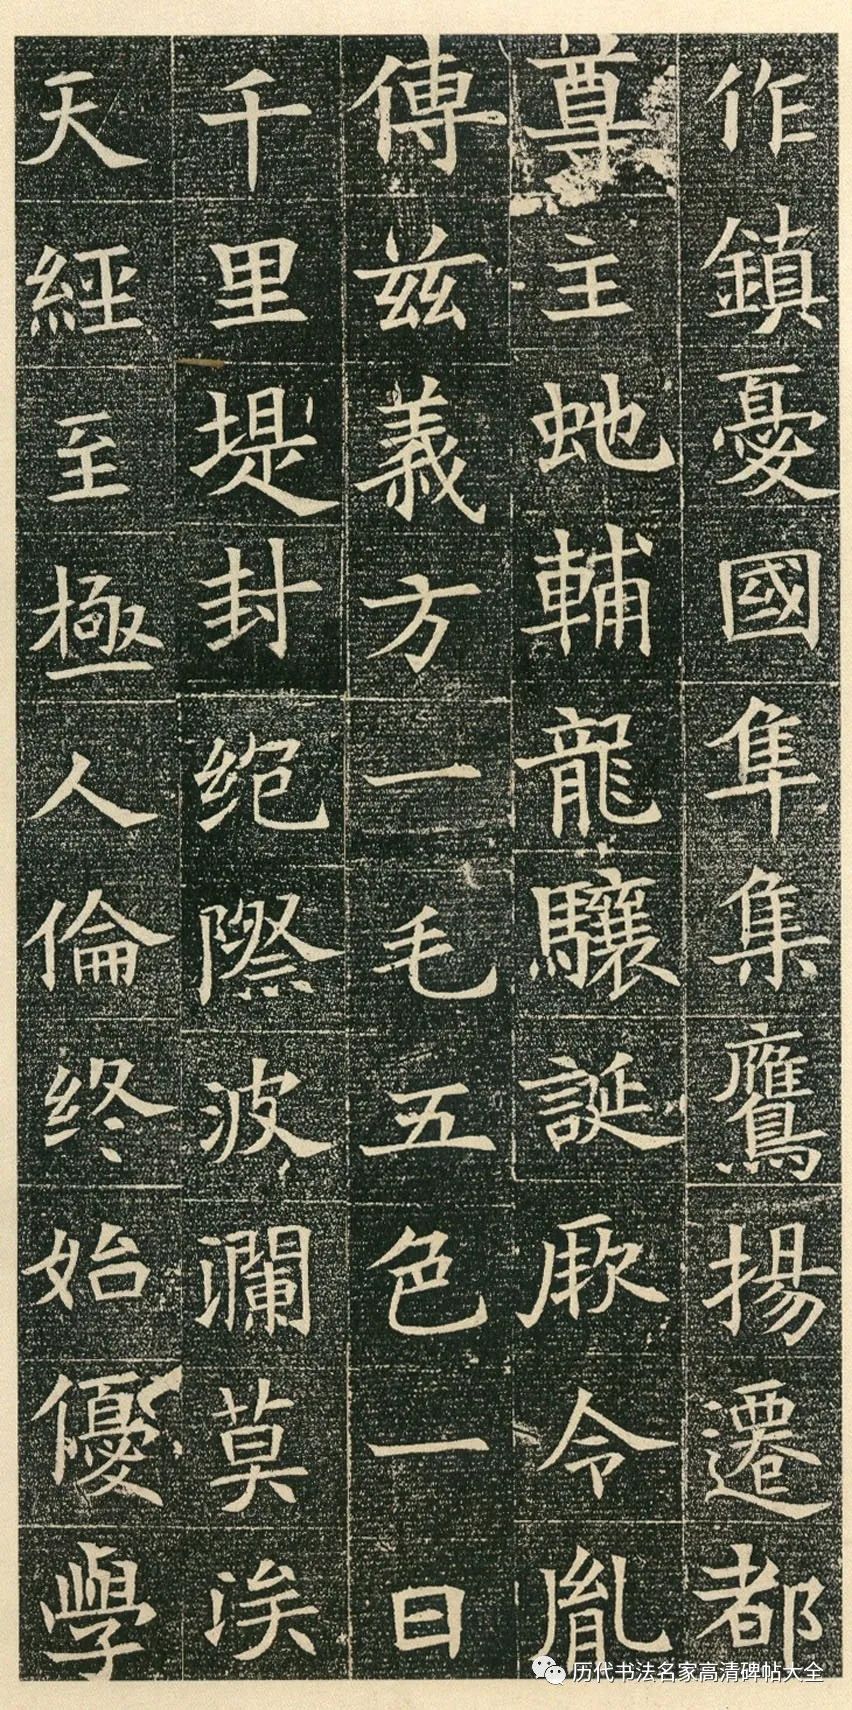 作鎮憂國隼集鷹揚遷都
尊主虵輔龍驤誕厥令胤
傳兹義方一毛五色一日
千里堤封絶際波瀾莫涘
天經至極人倫終始優學
历代书法名家高清碑帖大全